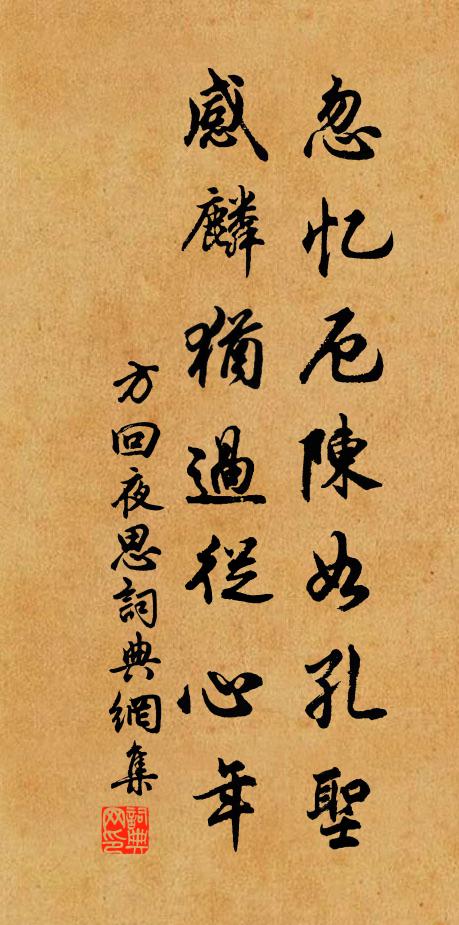 忽忆厄陳如孔聖
感麟猶過從心年
方回夜思詞典網集
詞典网印